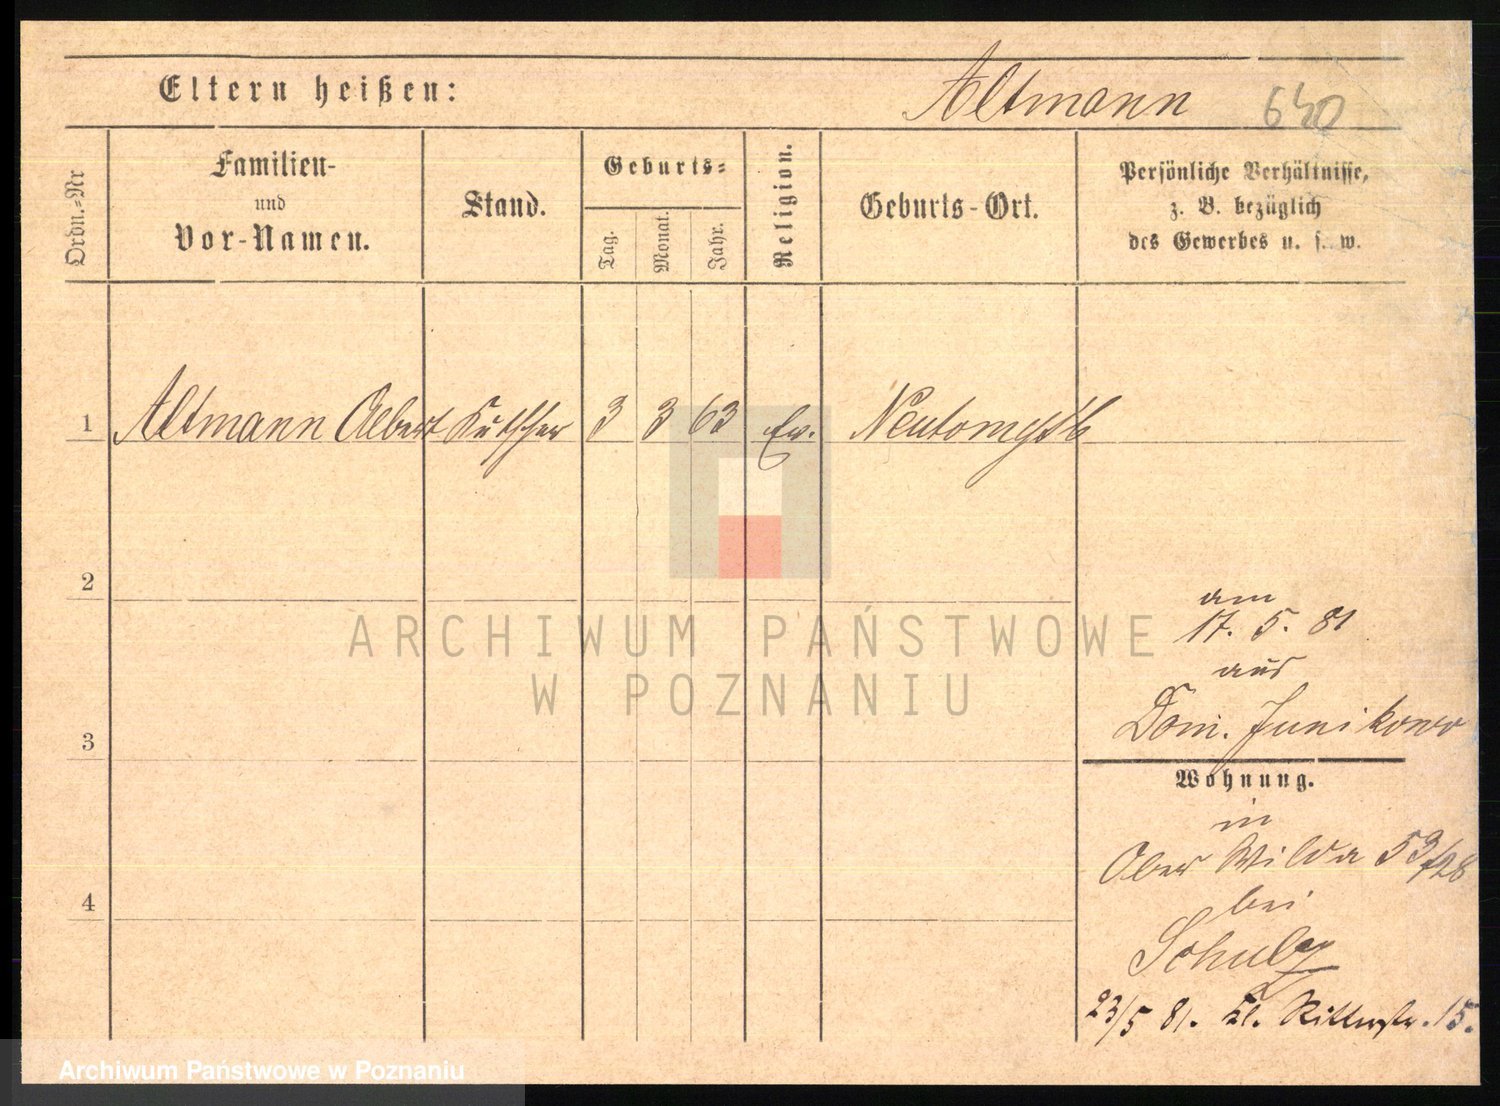 Eltern heißen:
Altmann 640
Ordn.-Nr
Familien-
und
Vor-Namen.
Stand.
Geburts-
Tag.
Monat.
Jahr.
Religion.
Geburts-Ort.
Persönliche Verhältnisse,
z. B. bezüglich
des Gewerbes u. s. w.
1 Altmann Albert Kutscher 3 3 63 Ev. Neutomysl
2
am
17. 5. 81
aus
Dom. Junikowo
3
Wohnung.
in
Ober Wilda 53/28
bei
4
Schulz
23/5 81. Kl. Ritterstr. 15.
ARCHIWUM PAŃSTWOWE
W POZNANIU
Archiwum Państwowe w Poznaniu